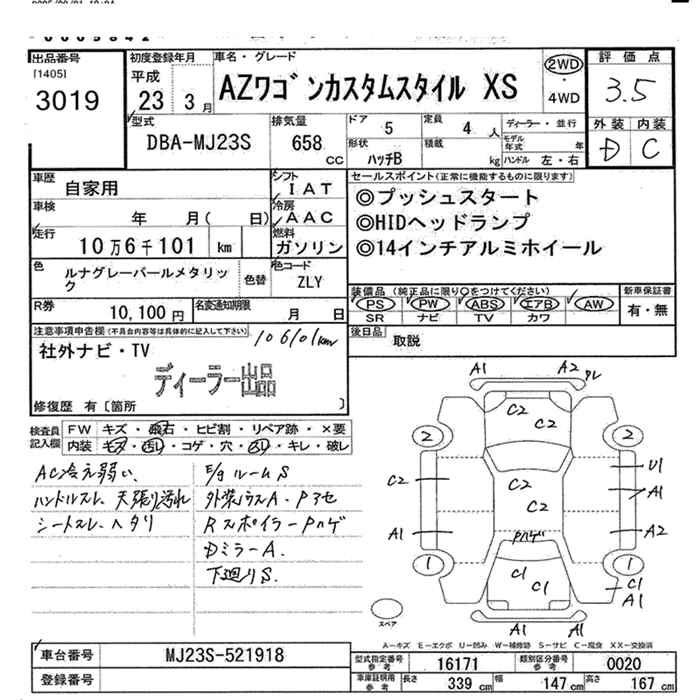 出品番号
[1405]
3019
初度登録年月
平成
23 3月
車名・グレード
AZワゴンカスタムスタイル XS
2WD
・
4WD
評価点
3.5
外装 内装
D C
型式
DBA-MJ23S
排気量
658
CC
ドア 5
定員 4 人
ディーラー・並行
形状 ハッチB
積載 kg
モデル年式 年
ハンドル 左・右
車歴
自家用
シフト
IAT
車検
年 月( 日)
冷房
AAC
走行
10万6千101 km
燃料
ガソリン
色
ルナグレーパールメタリック
色替
色コード
ZLY
R券
10,100円
名変通知期限
月 日
セールスポイント(正常に機能するものに限ります)
◎プッシュスタート
◎HIDヘッドランプ
◎14インチアルミホイール
装備品(純正品に限り○をつけてください)
PS PW ABS エアB AW
SR ナビ TV カワ
新車保証書
有・無
後日品
取説
注意事項申告欄(不具合内容等は具体的に記入して下さい)
106101km
社外ナビ・TV
ディーラー出品
修復歴 有〔箇所 〕
検査員記入欄
FW キズ・飛石・ヒビ割・リペア跡・×要
内装 キズ・汚れ・コゲ・穴・スレ・キレ・破レ
AC冷え弱い、
ハンドルスレ、天張り汚れ
シートスレ、ヘタリ
E/gルームS
外装小キズA・Pハセ
RスポイラーPハゲ
DミラーA.
下廻りS.
A1 A2 ワレ
C2
2 2
C2 C2 U1
C2 A1
A1 Pハゲ A2
1 C1 1
C1 C1
A1
A1 A1
スペア
A-キズ E-エクボ U-凹み W-補修跡 S-サビ C-腐食 XX-交換済
車台番号
MJ23S-521918
登録番号
型式指定番号参考
16171
類別区分番号参考
0020
車庫証明用参考
長さ 339 cm 幅 147 cm 高さ 167 cm